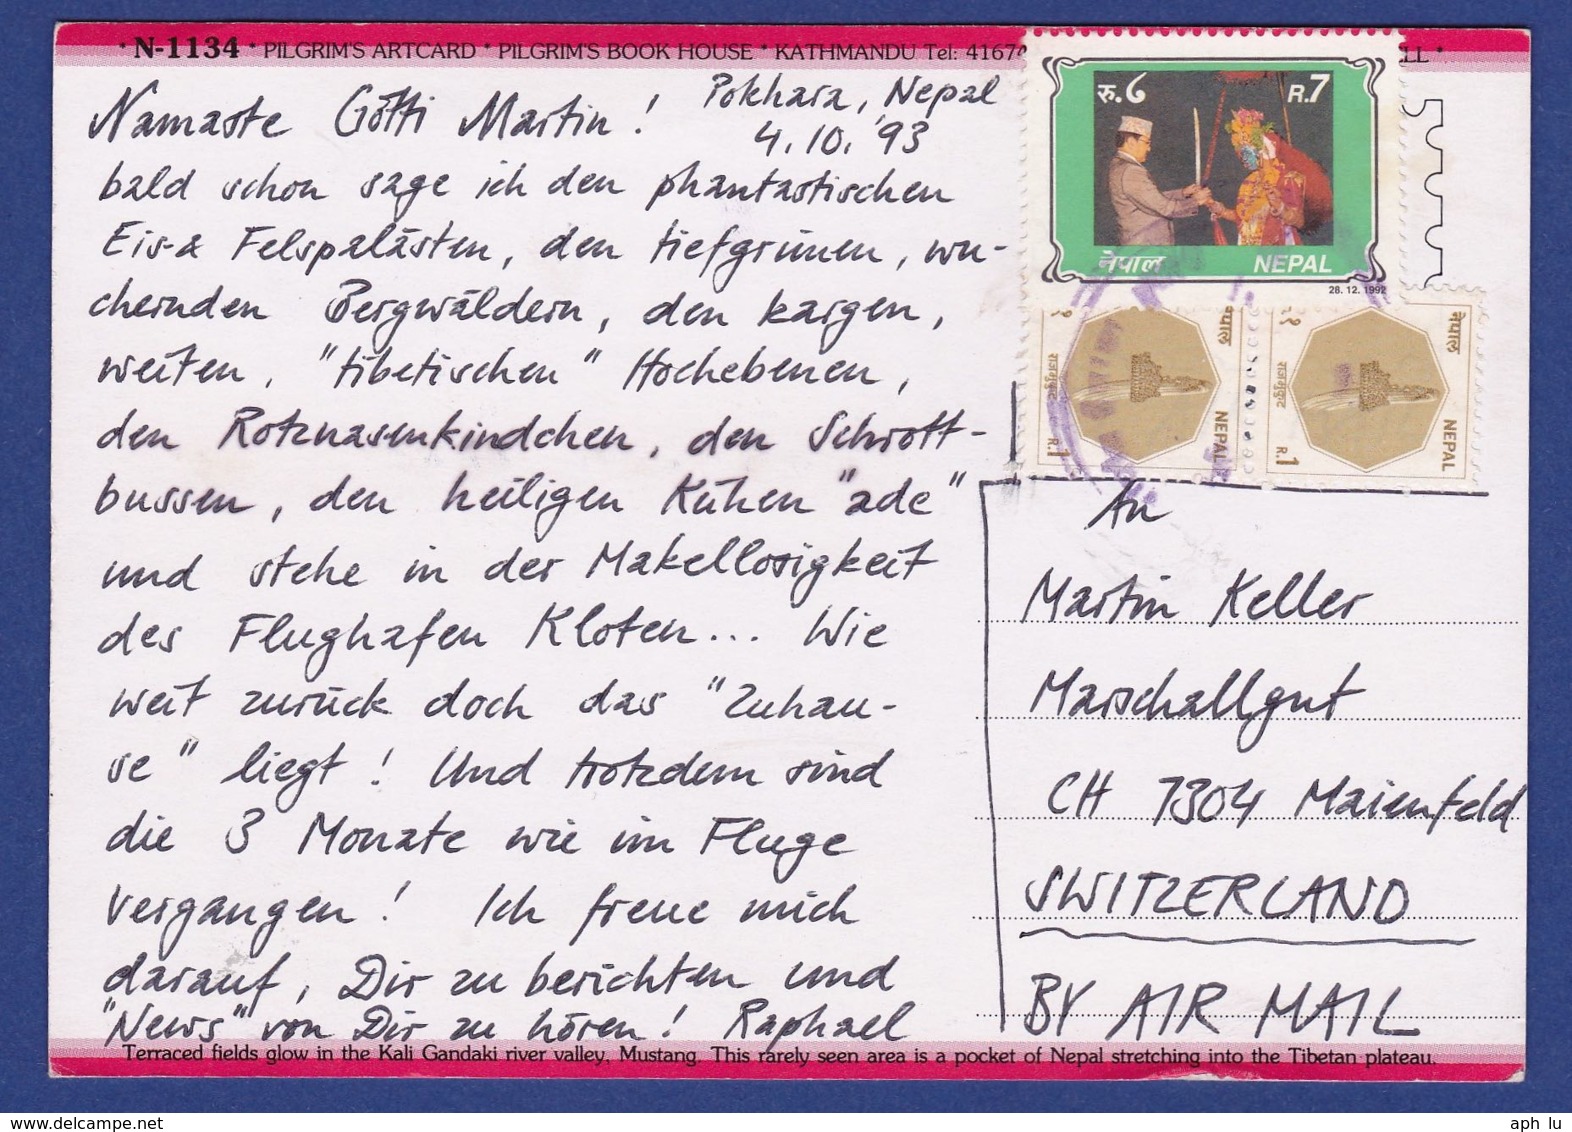 * N-1134 * PILGRIM'S ARTCARD * PILGRIM'S BOOK HOUSE * KATHMANDU Tel: 41674
LL *
Namaste Götti Martin! Pokhara, Nepal
4.10.'93
bald schon sage ich den phantastischen
Eis- & Felspalästen, den tiefgrünen, wu-
chernden Bergwäldern, den kargen,
weiten, "tibetischen" Hochebenen,
den Rotznasenkindchen, den Schrott-
bussen, den heiligen Kühen "ade"
und stehe in der Makellosigkeit
des Flughafen Kloten... Wie
weit zurück doch das "Zuhau-
se" liegt! Und trotzdem sind
die 3 Monate wie im Fluge
vergangen! Ich freue mich
darauf, Dir zu berichten und
"News" von Dir zu hören! Raphael
रु. ७ R.7
नेपाल NEPAL
28. 12. 1992
रु.१ नेपाल राजमुकुट R.1 NEPAL
रु.१ नेपाल राजमुकुट R.1 NEPAL
An
Martin Keller
Marschallgut
CH 7304 Maienfeld
SWITZERLAND
BY AIR MAIL
Terraced fields glow in the Kali Gandaki river valley, Mustang. This rarely seen area is a pocket of Nepal stretching into the Tibetan plateau.
aph lu
www.delcampe.net